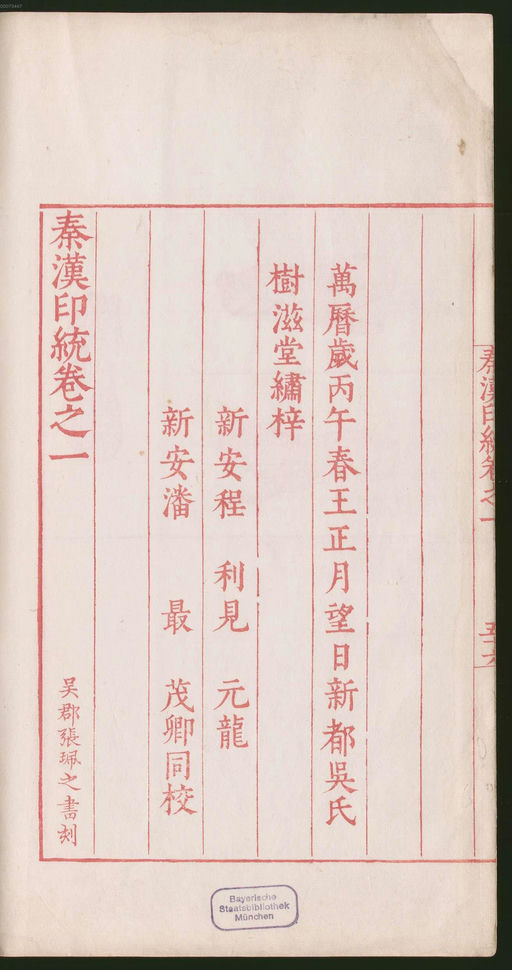 秦漢印統卷之一
萬曆歲丙午春王正月望日新都吳氏
樹滋堂繡梓
新安程 利見 元龍
新安潘 最 茂卿同校
秦漢印統卷之一
吳郡張珮之書刻
Bayerische
Staatsbibliothek
München